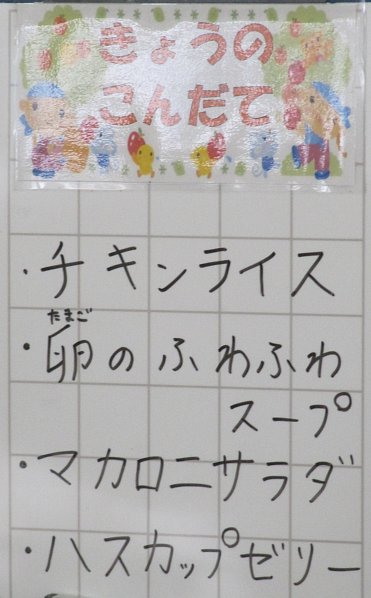 きょうの
こんだて
・チキンライス
たまご
・卵のふわふわ
スープ
・マカロニサラダ
・ハスカップゼリー